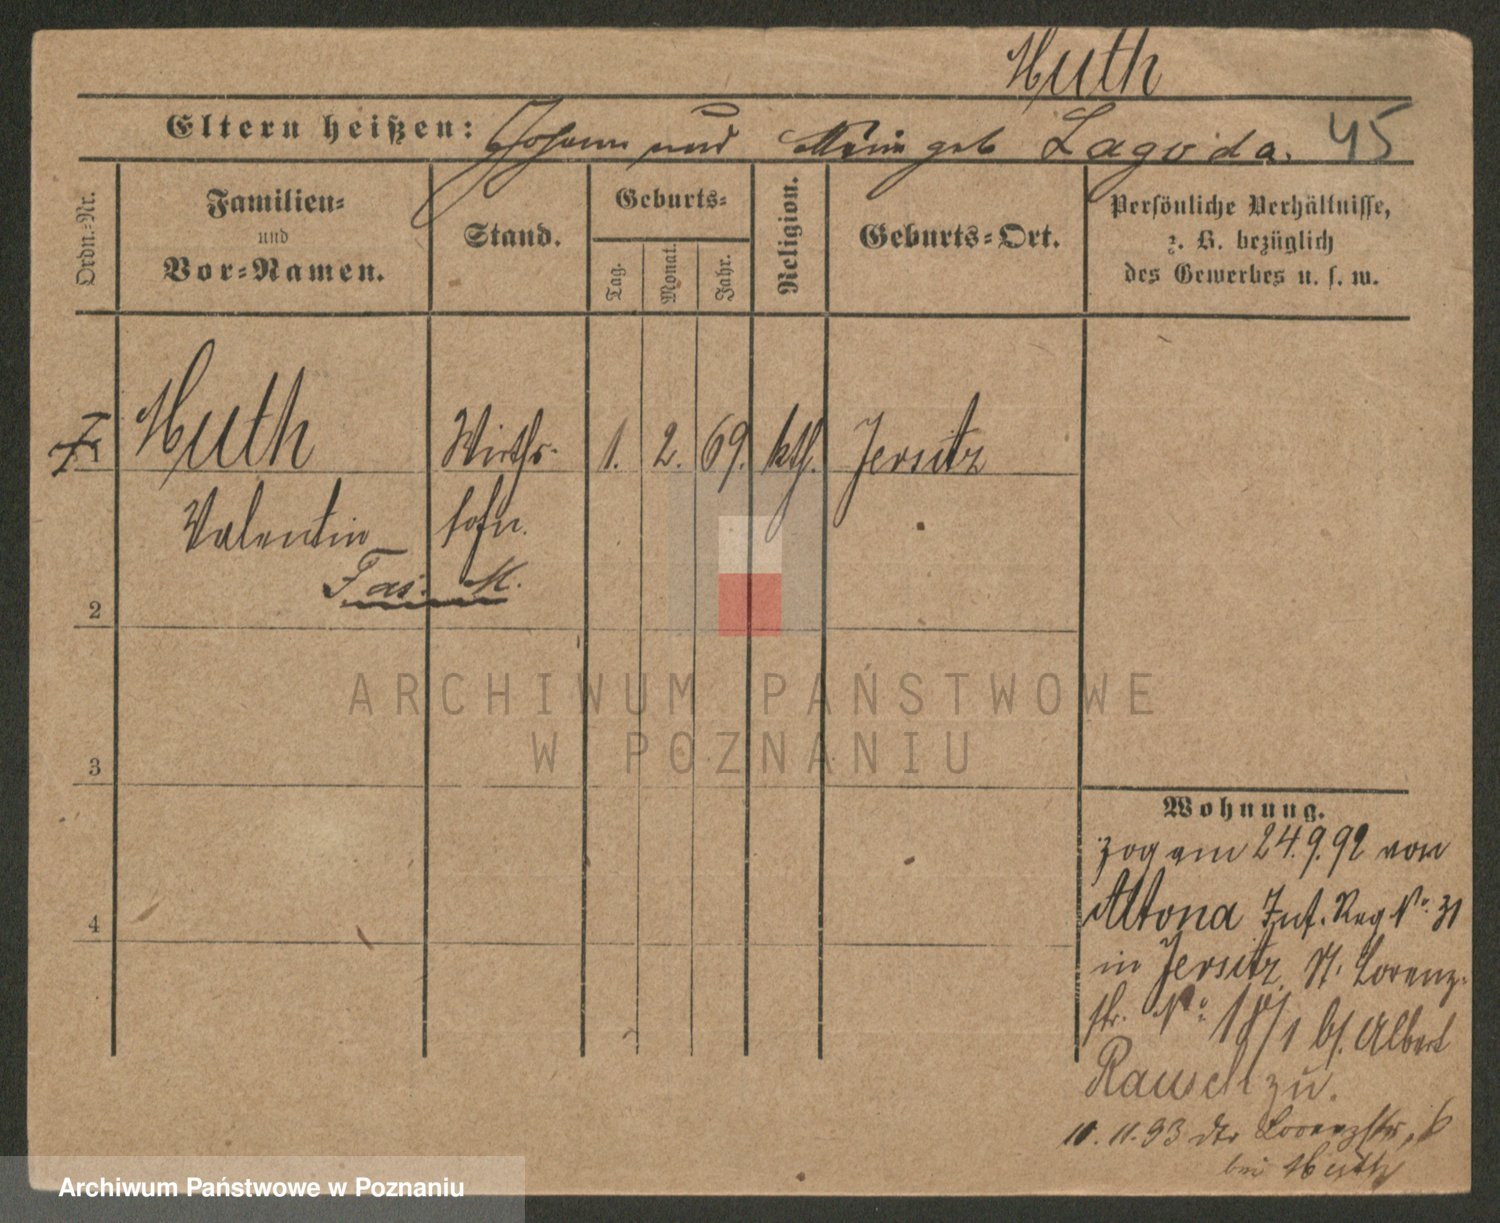 Huth
Eltern heißen: Johann und Marie geb Lagoda. 45
Ordn.-Nr.
Familien-
und
Vor-Namen.
Stand.
Geburts-
Tag.
Monat.
Jahr.
Religion.
Geburts-Ort.
Persönliche Verhältnisse,
z. B. bezüglich
des Gewerbes u. s. w.
Huth Wirths- 1. 2. 69. kth. Jersitz
Valentin sohn.
Fas. M.
2
3
4
ARCHIWUM PAŃSTWOWE
W POZNANIU
Wohnung.
zog am 24.9.92 von
Altona Inf. Reg No. 31
in Jersitz, St. Lorenz-
str. No. 18/1 b/. Albert
Rausch zu.
10.11.93 Lorenzstr.
bei Huth
Archiwum Państwowe w Poznaniu